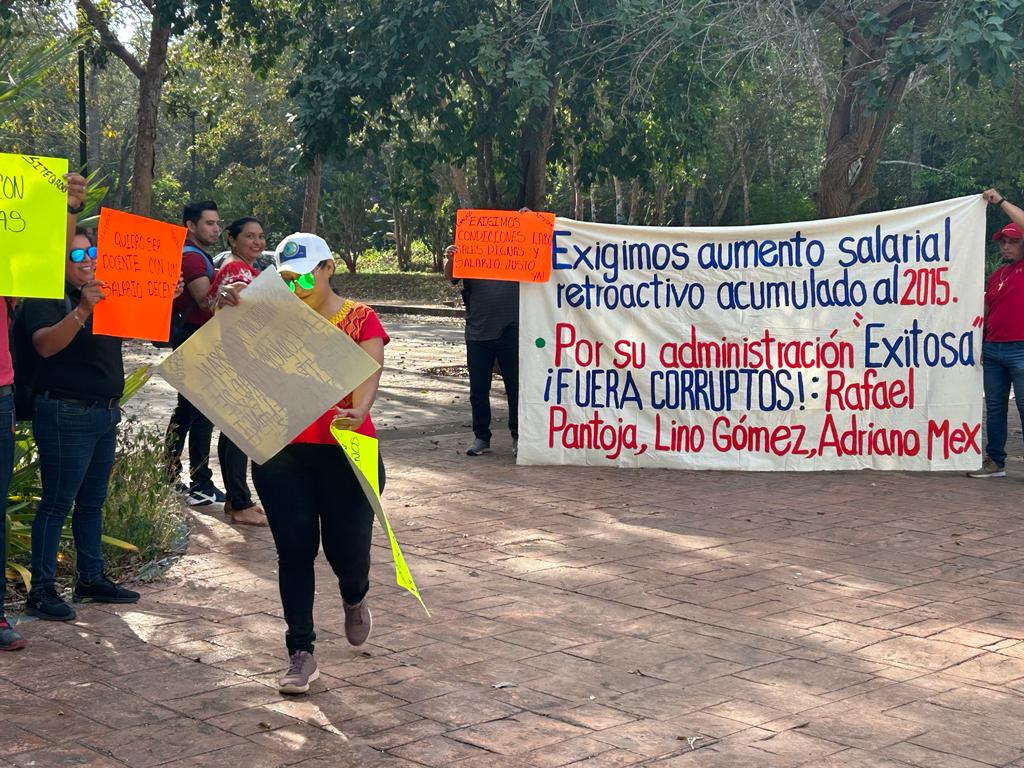 CON
AS
QUIERO SER
DOCENTE CON UN
SALARIO DECE
EXIGIMOS
CONDICIONES LABO
RALES DIGNAS Y
SALARIO JUSTO
YA!
Exigimos aumento salarial
retroactivo acumulado al 2015.
• Por su administración "Exitosa"
¡FUERA CORRUPTOS!: Rafael
Pantoja, Lino Gómez, Adriano Mex
NOS